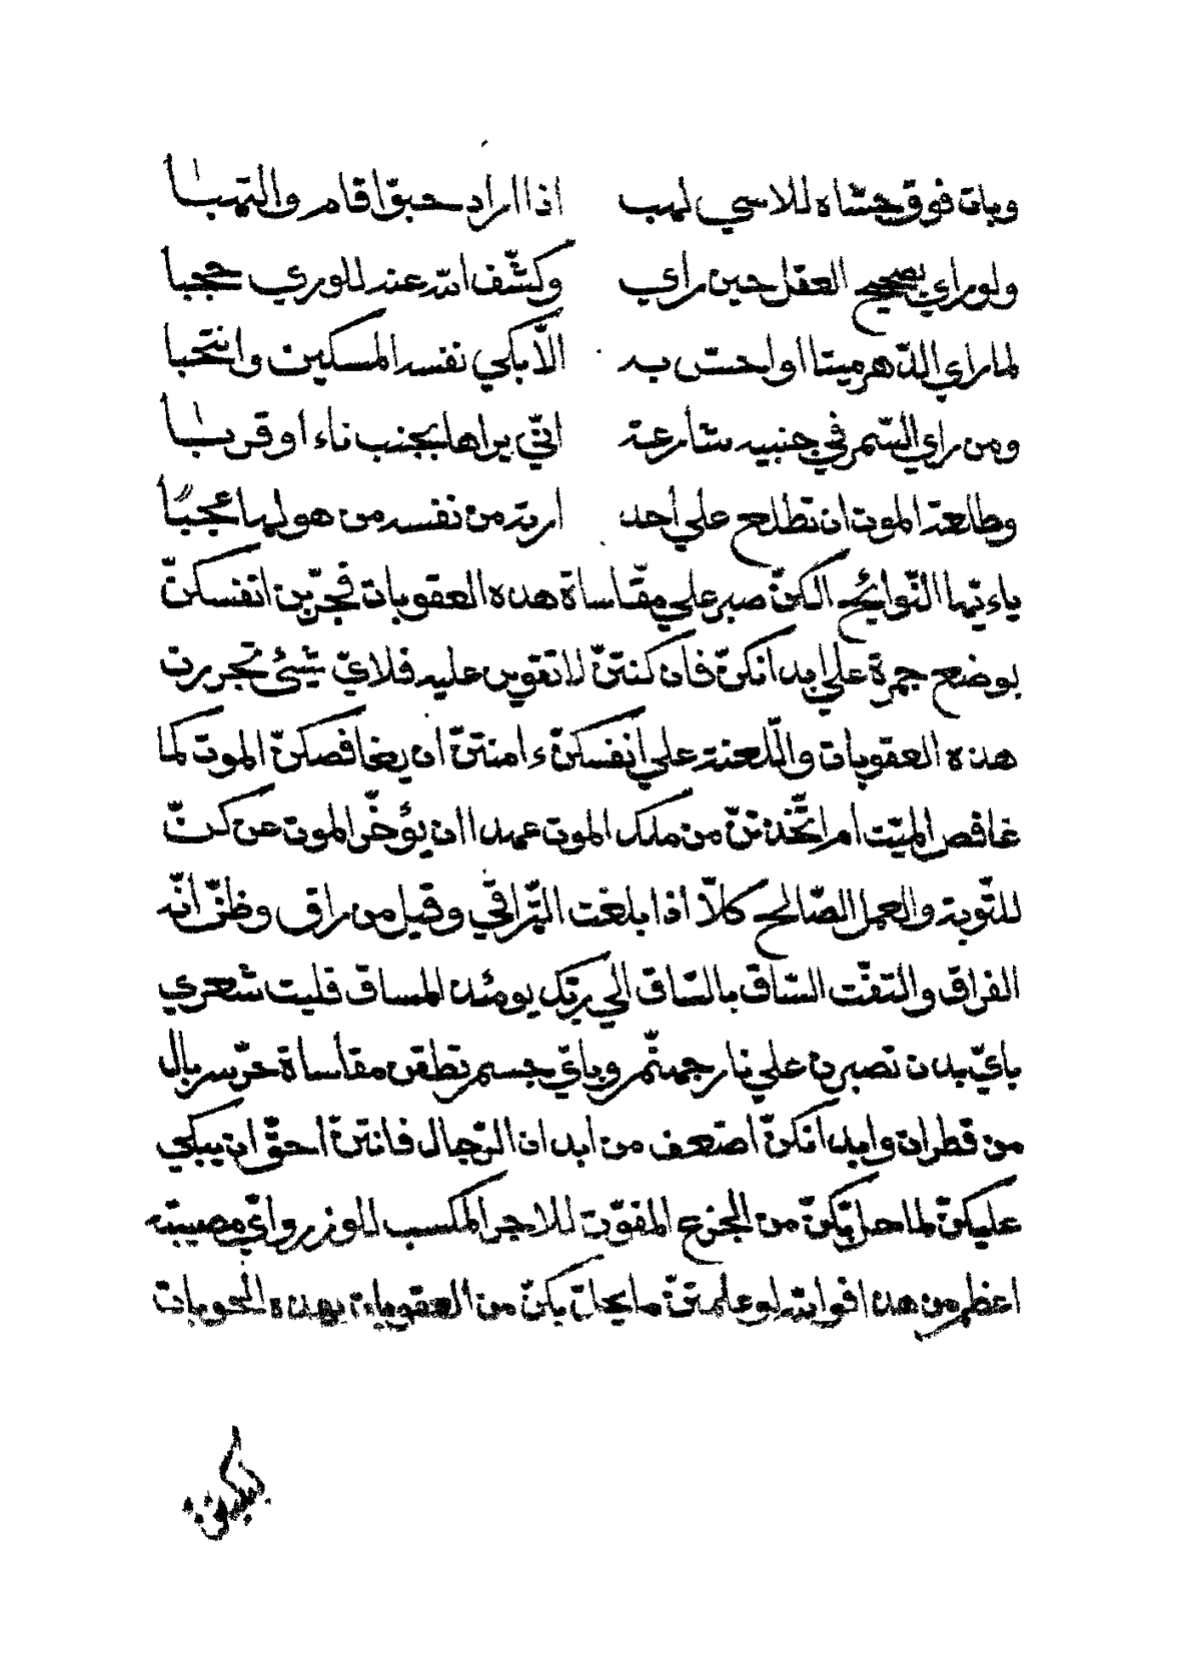 وبات فوق حشاه للاسي لهب اذا اراد خبوّا قام والتهبا
ولو راي بصحيح العقل حين راي وكشّف الله عنه للوري حجبا
لما راي الدّهر ميتا او احسّ به الّا بكي نفسه المسكين وانتحبا
ومن راي السّمر في جنبيه شارعة انّي يراها بجنب ناء او قربا
وطالعة الموت ان تطلع علي أحد ارته من نفسه من هولها عجبًا
ياءيّها النّوايح الكنّ صبر علي مقاساة هده العقوبات فجرّبن انفسكنّ
بوضع جمرة علي ابدانكنّ فان كنتنّ لا تقوين عليه فلايّ شيئ تجررن
هده العقوبات واللّعنة علي أنفسكنّ ءامنتنّ أن يغافصكنّ الموت كما
غافص الميّت أم اتّخدتنّ من ملك الموت عهدا ان يؤخّر الموت عن كنّ
للتّوبة والعمل الصّالح كلاّ أذا بلغت التّراقي وقيل من راق وظنّ انّه
الفراق والتفّت السّاق بالسّاق الي ربّك يومئد المساق فليت شعري
بايّ بدن تصبرن علي نار جهنّم وبايّ جسم تطقن مقاساة حرّ سربال
من قطران وابدانكنّ اضعف من أبدان الرّجال فانتنّ أحقّ ان يبكي
عليكنّ لما حل بكنّ من الجزع المفوّت للاجر المكسب للوزر وايّ مصيبة
اعظم من هدا فوالله لو علمتنّ ما يحلّ بكنّ من العقوبات بهده الحوبات
لبكيتنّ